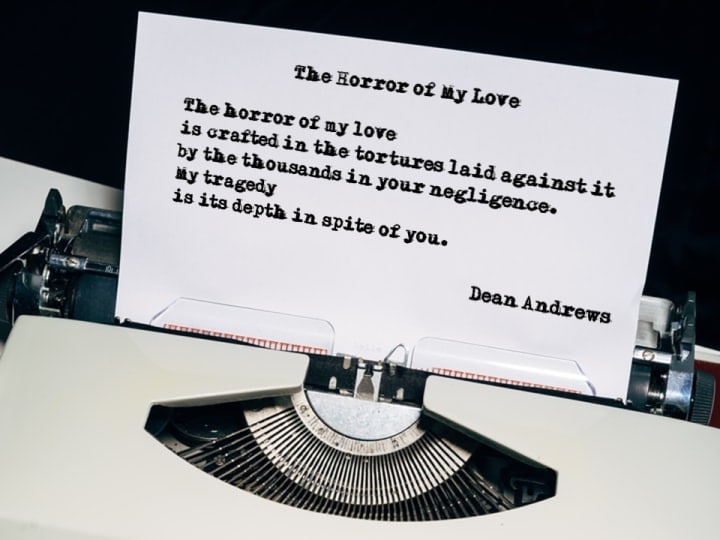 The Horror of My Love
The horror of my love
is crafted in the tortures laid against it
by the thousands in your negligence.
My tragedy
is its depth in spite of you.
Dean Andrews